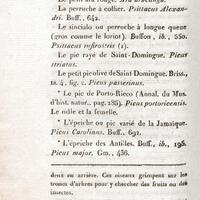 La perruche à collier. Psittacus Alexan-
dri. Buff. 642.
Le sincialo ou perruche à longue queue
(gros comme le loriot). Buffon, ib., 550.
Psittacus rufirostris (1).
Le pic rayé de Saint-Domingue. Picus
striatus.
Le petit pic olive de Saint-Domingue. Briss.,
in 4., fig. 1, p. 122. Picus passerinus.
* Le pic de Porto-Ricco (Annal. du Mus.
d'hist. natur., pag. 285). Picus portoricensis.
Le mâle et la femelle.
* L'épeiche ou pic varié de la Jamaïque.
Picus Carolinus. Buff., 692.
* L'épeiche des Antilles. Buff., ib., 195.
Picus major. Gm., 436.
deux en arrière. Ces oiseaux grimpent sur les
troncs d'arbres pour y chercher des fruits ou des
insectes.